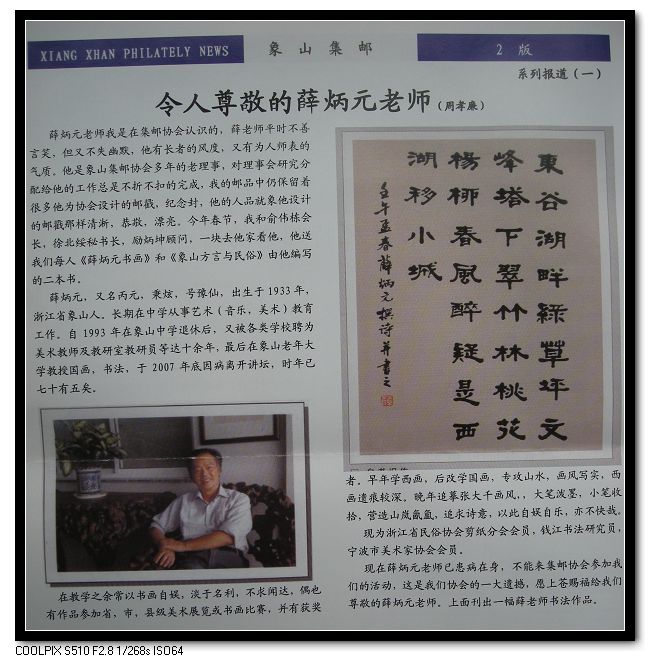 XIANG XHAN PHILATELY NEWS
象山集邮
2 版
系列报道（一）
令人尊敬的薛炳元老师（周孝廉）
薛炳元老师我是在集邮协会认识的，薛老师平时不善
言笑，但又不失幽默，他有长者的风度，又有为人师表的
气质。他是象山集邮协会多年的老理事，对理事会研究分
配给他的工作总是不折不扣的完成，我的邮品中仍保留着
很多他为协会设计的邮戳，纪念封，他的人品就象他设计
的邮戳那样清淅，恭敬，漂亮。今年春节，我和俞伟栋会
长，徐北绥秘书长，励炳坤顾问，一块去他家看他，他送
我们每人《薛炳元书画》和《象山方言与民俗》由他编写
的二本书。
薛炳元，又名丙元，秉炫，号豫仙，出生于 1933 年，
浙江省象山人。长期在中学从事艺术（音乐，美术）教育
工作。自 1993 年在象山中学退休后，又被各类学校聘为
美术教师及教研室教研员等达十余年，最后在象山老年大
学教授国画，书法，于 2007 年底因病离开讲坛，时年已
七十有五矣。
在教学之余常以书画自娱，淡于名利，不求闻达，偶也
有作品参加省，市，县级美术展览或书画比赛，并有获奖
東谷湖畔綠草坪文
峰塔下翠竹林桃花
楊柳春風醉疑是西
湖移小城
壬午孟春薛炳元撰诗并書之
者。早年学西画，后改学国画，专攻山水，画风写实，西
画遗痕较深。晚年追摹张大千画风,，大笔泼墨，小笔收
拾，营造山岚氤氲，追求诗意，以此自娱自乐，亦不快哉。
现为浙江省民俗协会剪纸分会会员，钱江书法研究员，
宁波市美术家协会会员。
现在薛炳元老师已患病在身，不能来集邮协会参加我
们的活动，这是我们协会的一大遗憾，愿上苍赐福给我们
尊敬的薛炳元老师。上面刊出一幅薛老师书法作品。
COOLPIX S510 F2.8 1/268s ISO64